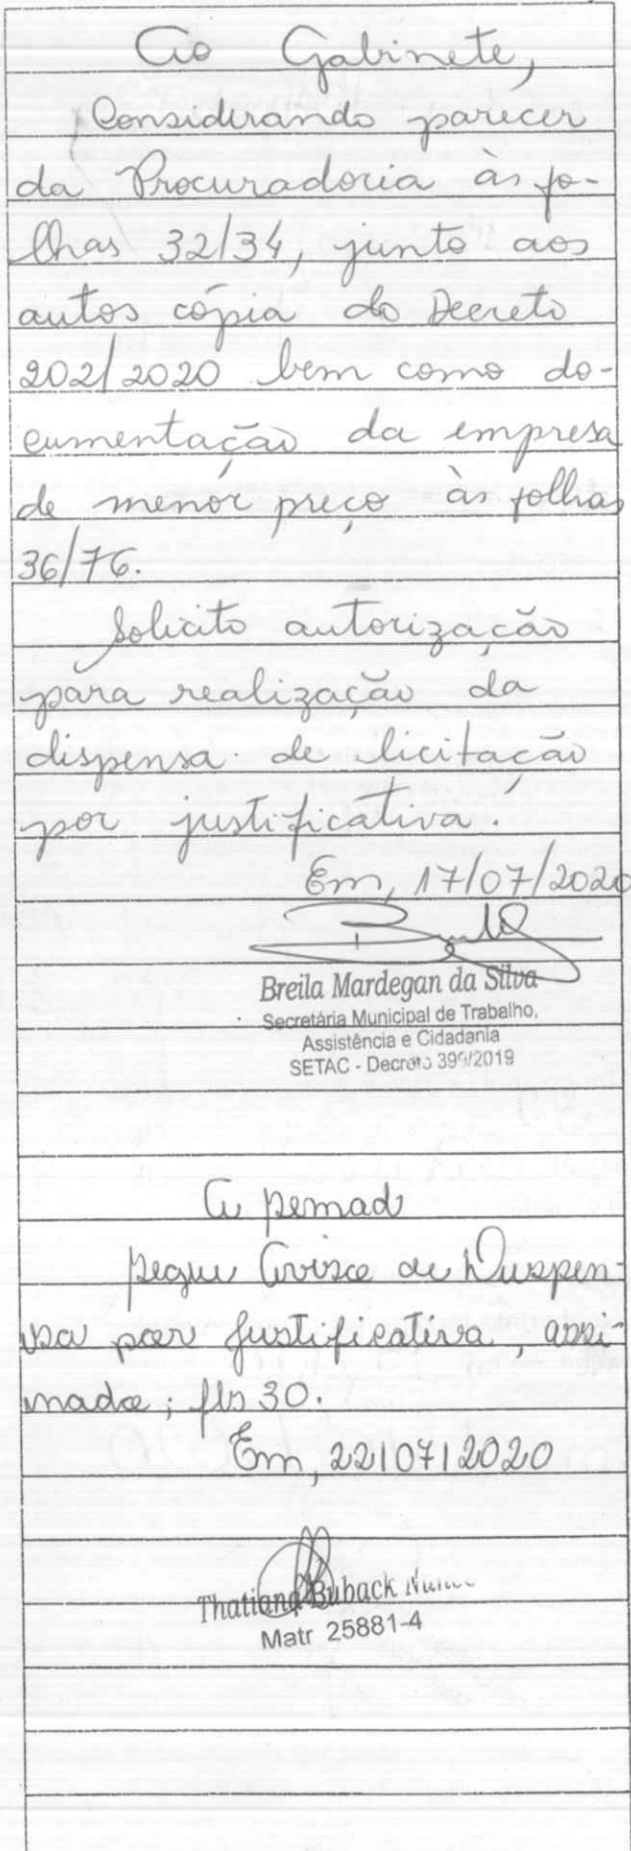 Ao Gabinete,
Considerando parecer
da Procuradoria às fo-
lhas 32/34, junto aos
autos cópia do Decreto
202/2020 bem como do-
cumentação da empresa
de menor preço às folhas
36/76.
Solicito autorização
para realização da
dispensa de licitação
por justificativa.
Em, 17/07/2020
Breila Mardegan da Silva
Secretária Municipal de Trabalho,
Assistência e Cidadania
SETAC - Decreto 399/2019
A Semad
Segue Aviso de Dispen-
sa por Justificativa, assi-
nada; fls 30.
Em, 22/07/2020
Thatiana Buback
Matr 25881-4